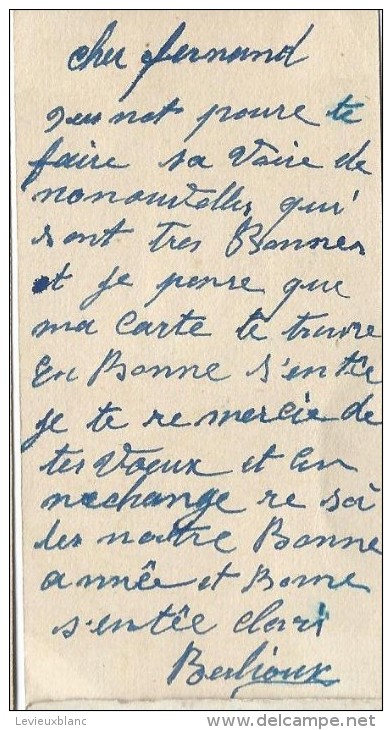 cher fernand
un not poure te
faire sa Voire de
nonouvelles qui
sont Tres Bonnes
et je pense que
ma Carte te trouve
En Bonne s'entée
je te re mercie de
tes Voeux et En
nechange re soi
les notre Bonne
année et Bonne
s'entée
Berlioux
Levieuxblanc
www.delcampe.net